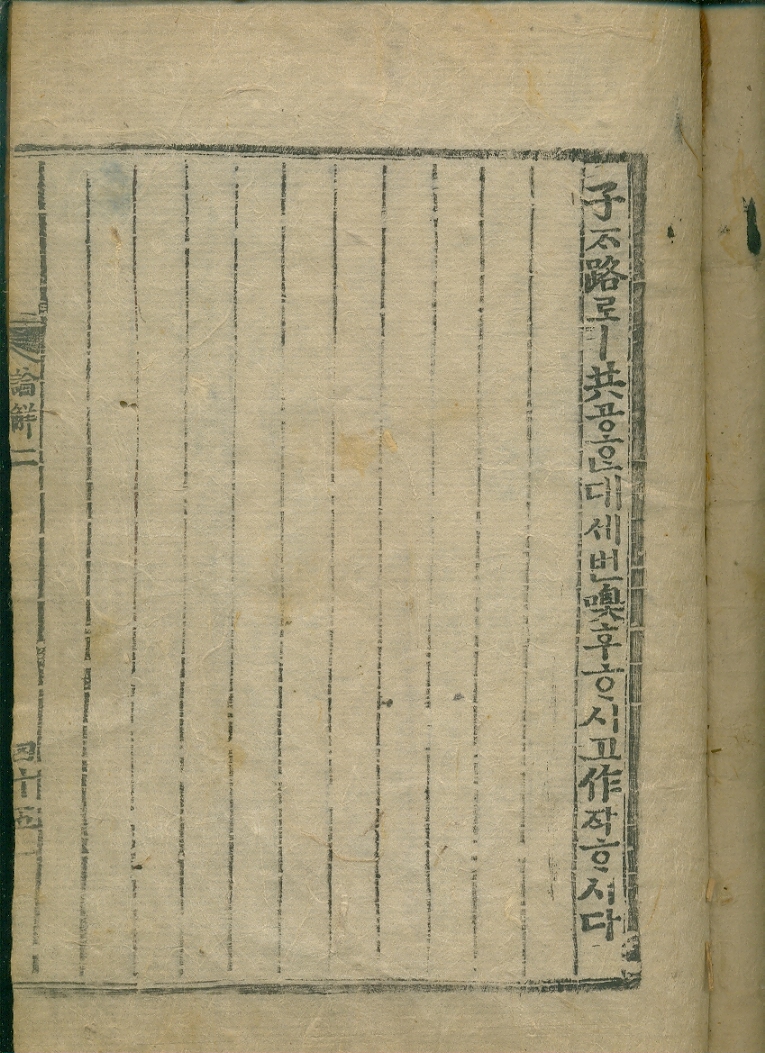 子ᄌᆞ路로ㅣ共공ᄒᆞᆫ대세번嗅후ᄒᆞ시고作작ᄒᆞ시다
論觧二
四十五